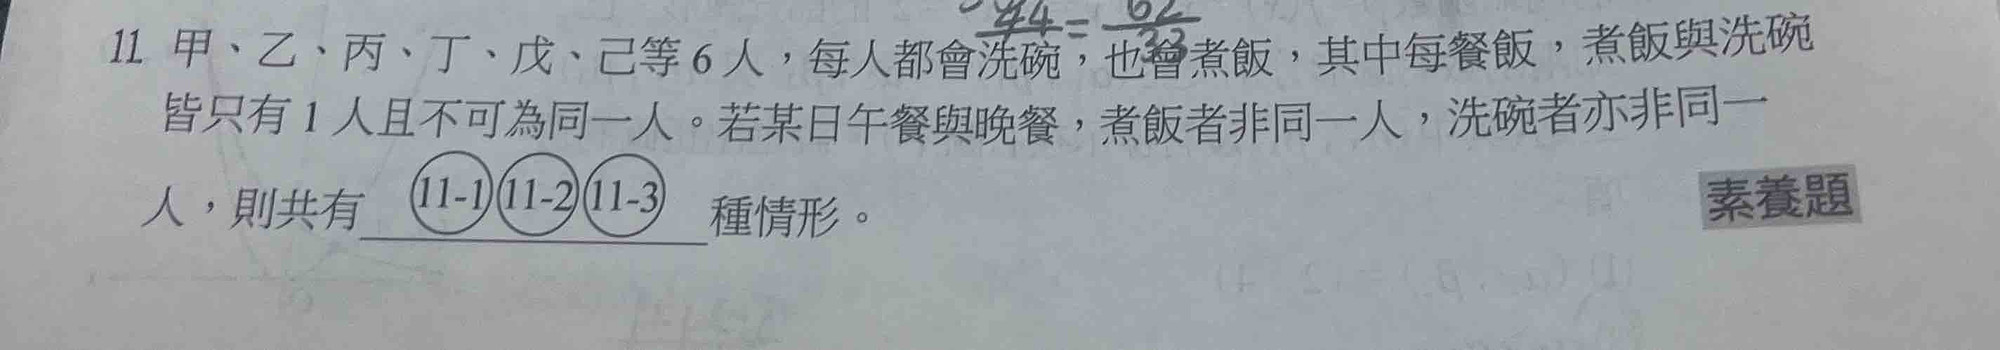 44 = 62
33
11 甲、乙、丙、丁、戊、己等 6 人，每人都會洗碗，也會煮飯，其中每餐飯，煮飯與洗碗
皆只有 1 人且不可為同一人。若某日午餐與晚餐，煮飯者非同一人，洗碗者亦非同一
人，則共有 11-1 11-2 11-3 種情形。
素養題